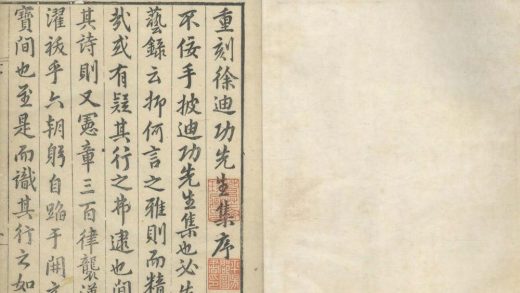 重刻徐迪功先生集序
不佞手披迪功先生集也必先
藝錄云抑何言之雅則而精
哉或有疑其行之弗逮也間
其詩則又憲章三百律襲漢
濯祓乎六朝躬自蹈于開元
寶間也至是而識其行之如